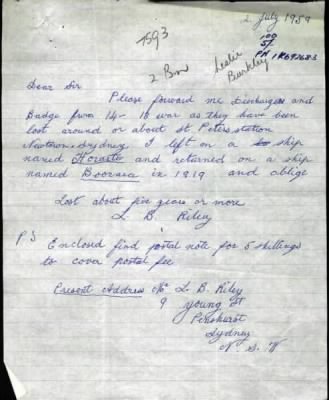 2 July 1959
7593
100
5/-
PN 1K692683
2 Bn
Leslie
Buckley
Dear Sir
Please forward me Discharges and
Badge from 14-18 war as they have been
lost around or about St. Peters station
Newtown. Sydney I left on a ship
named and returned on a ship
named Boorara in 1919 and oblige
Lost about five years or more
L. B. Riley
P S Enclosed find postal note for 5 shillings
to cover postal fee
Present Address Mr L. B. Riley
9 young St
Penshurst
Sydney
N. S. W